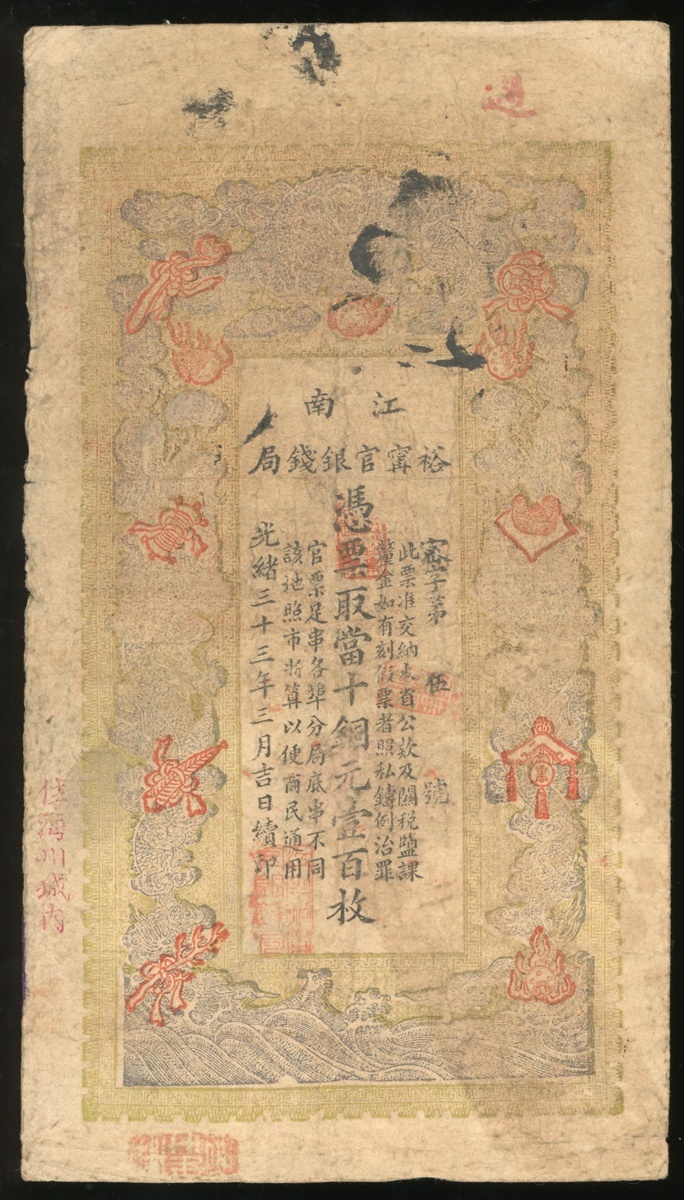 江南
裕甯官銀錢局
密字第 伍 號
此票准交納本省公款及關稅鹽課
釐金如有刻假票者照私鑄例治罪
憑票取當十銅元壹百枚
官票足串各埠分局底串不同
該地照市折算以便商民通用
光緒三十三年三月吉日續印
城內